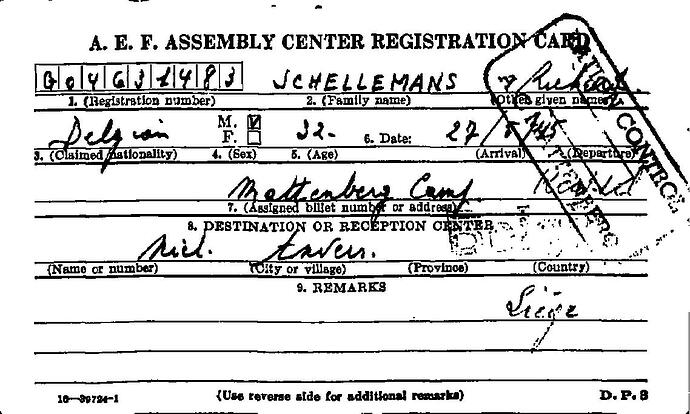 A. E. F. ASSEMBLY CENTER REGISTRATION CARD
G04631483 SCHELLEMANS Richard
1. (Registration number) 2. (Family name) (Other given names)
Belgian M. F. 32- 6. Date: 27/5/45
3. (Claimed nationality) 4. (Sex) 5. (Age) (Arrival) (Departure)
Mattenberg Camp
7. (Assigned billet number or address)
8. DESTINATION OR RECEPTION CENTER
Niel. Anvers.
(Name or number) (City or village) (Province) (Country)
9. REMARKS
Liège
16-39724-1 (Use reverse side for additional remarks) D. P. 3
CONTROL